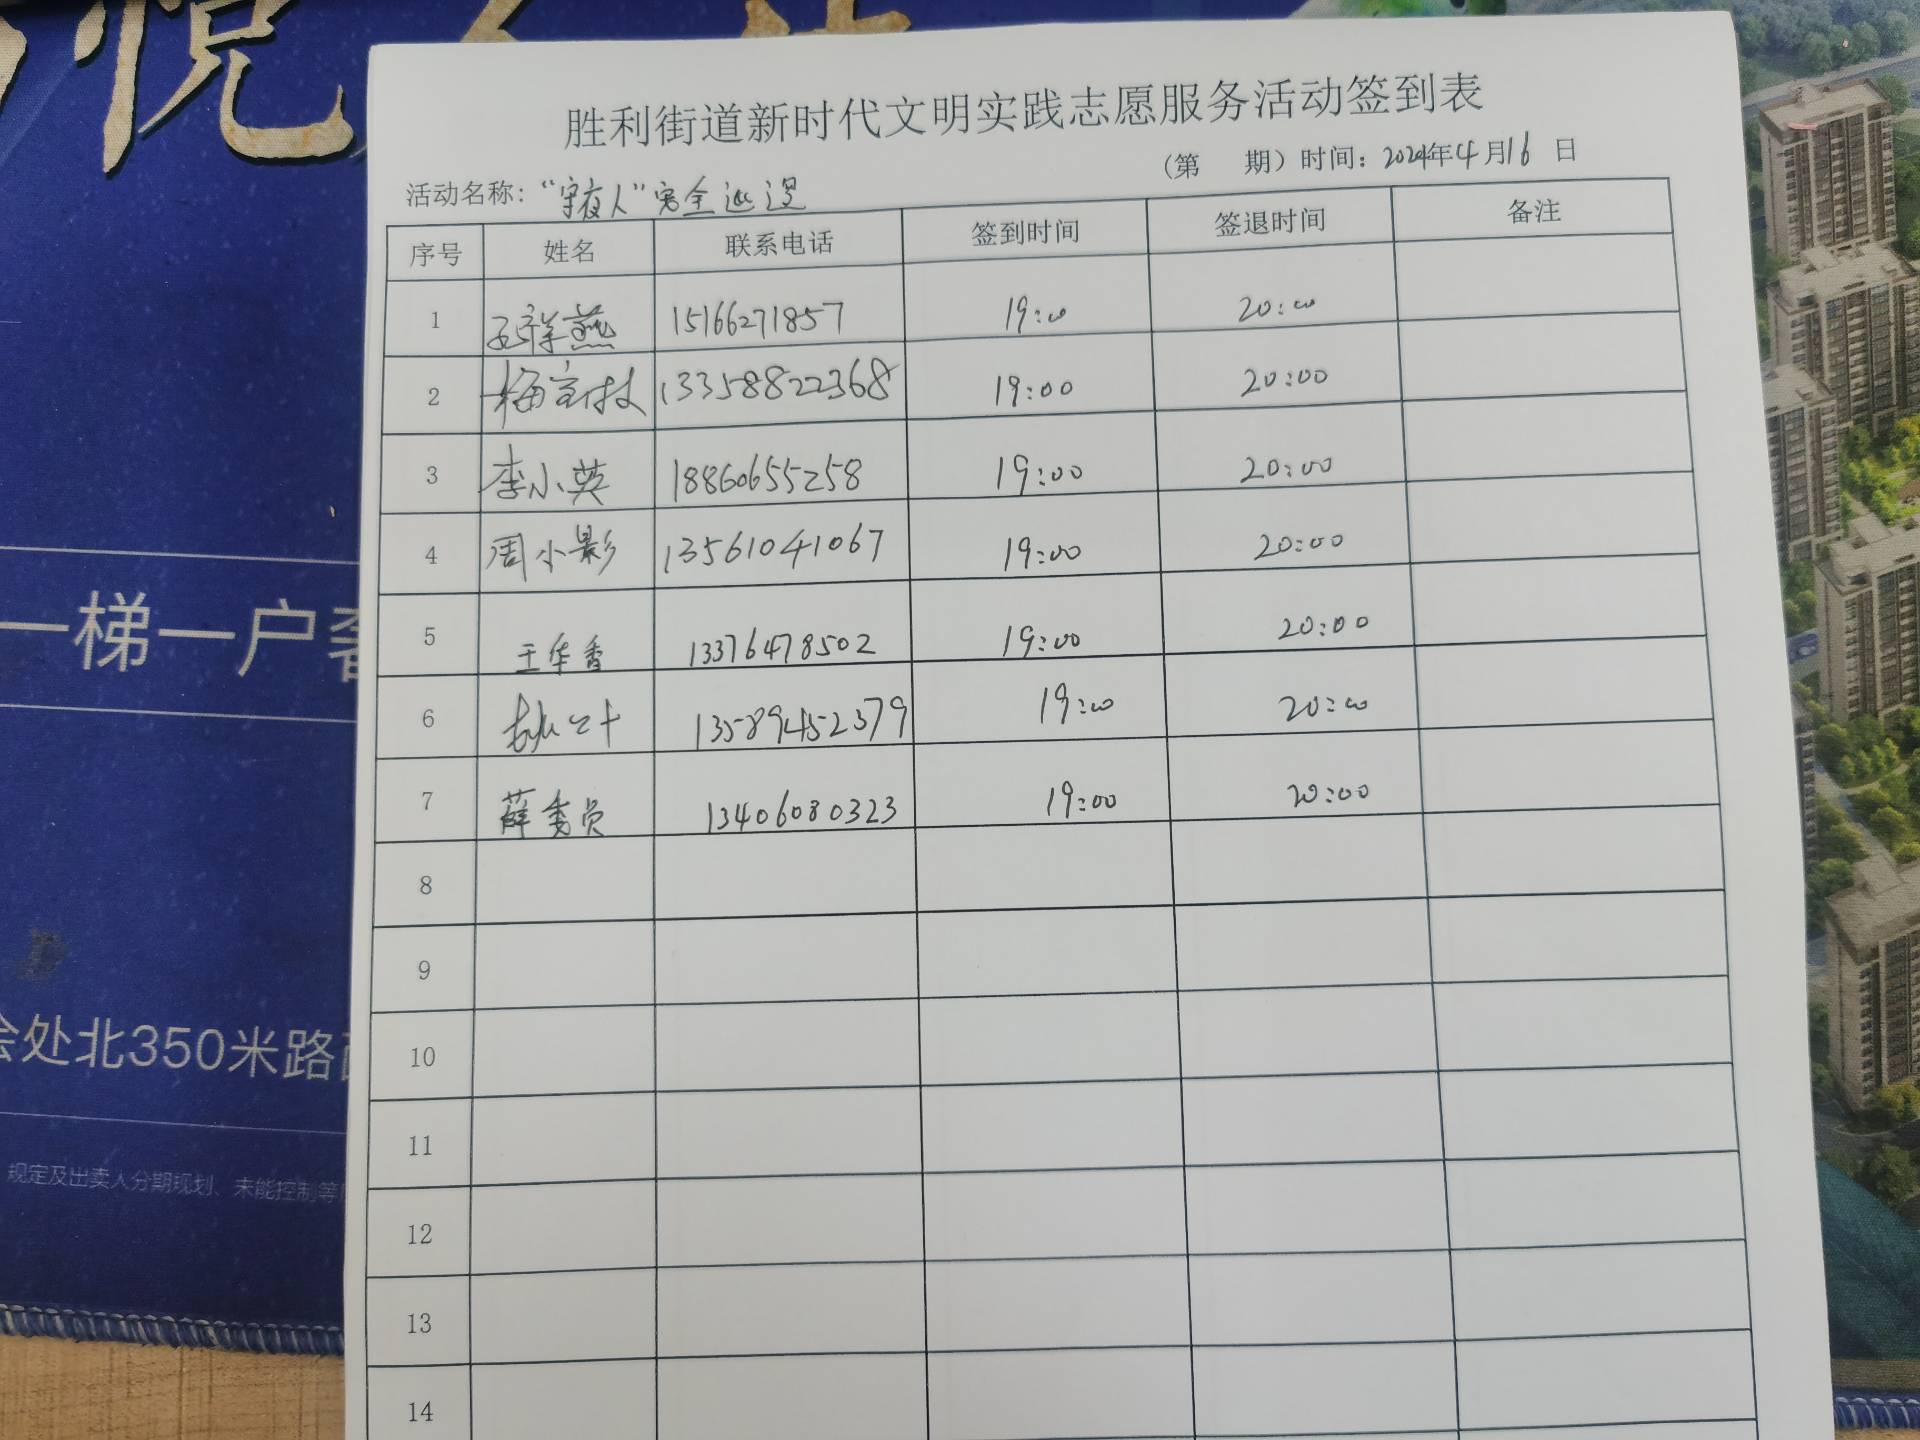 悦
一梯一户
处北350米路
规定及出卖人分期规划、未能控制等
胜利街道新时代文明实践志愿服务活动签到表
(第 期) 时间: 2024年4月16日
活动名称: “守夜人”安全巡逻
序号 姓名 联系电话 签到时间 签退时间 备注
1 15166271857 19:00 20:00
2 13358822368 19:00 20:00
3 李小英 18860655258 19:00 20:00
4 周小影 13561041067 19:00 20:00
5 王华香 13376478502 19:00 20:00
6 13589452379 19:00 20:00
7 薛秀员 13406080323 19:00 20:00
8
9
10
11
12
13
14